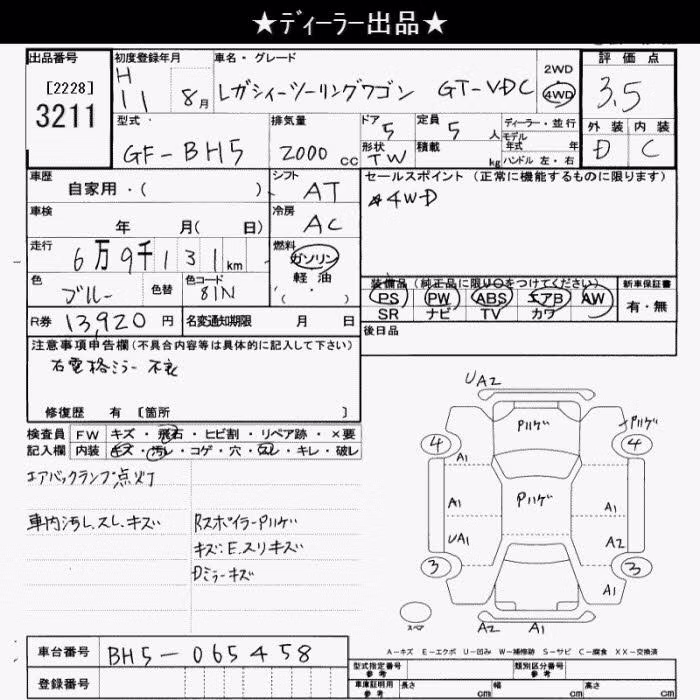 ★ディーラー出品★
出品番号 初度登録年月 車名・グレード 2WD 評価点
[2228] H
3211 11 8月 レガシィーツーリングワゴン GT-VDC 4WD 3.5
型式 排気量 ドア 定員 ディーラー・並行 外装 内装
GF-BH5 2000cc 5 5人 モデル年式 年 D C
形状 TW 積載 kg ハンドル 左・右
車歴 自家用・( ) シフト AT セールスポイント(正常に機能するものに限ります)
車検 年 月(日) 冷房 AC 4WD
走行 6万9千131km 燃料 ガソリン
軽油
( ・ )
色 ブルー 色替 色コード 81N 装備品(純正品に限り○をつけてください) 新車保証書
PS PW ABS エアB AW 有・無
SR ナビ TV カワ
R券 13,920円 名変通知期限 月 日 後日品
注意事項申告欄(不具合内容等は具体的に記入して下さい)
右電格ミラー不良
修復歴 有 [箇所 ]
検査員 FW キズ・飛石・ヒビ割・リペア跡・×要
記入欄 内装 キズ・汚レ・コゲ・穴・スレ・キレ・破レ
エアバックランプ点灯
車内汚レ.スレ.キズ RスポイラーPハゲ
キズ:E.スリキズ
Dミラーキズ
UA2
Pハゲ Pハゲ
4 4
A1 A1
A1 Pハゲ A1
UA1 A2
3 3
A1
スペア A2 A1
A-キズ E-エクボ U-凹み W-補修跡 S-サビ C-腐食 XX-交換済
車台番号 BH5-065458
型式指定番号 参考 類別区分番号 参考
登録番号 車庫証明用 参考 長さ cm 幅 cm 高さ cm